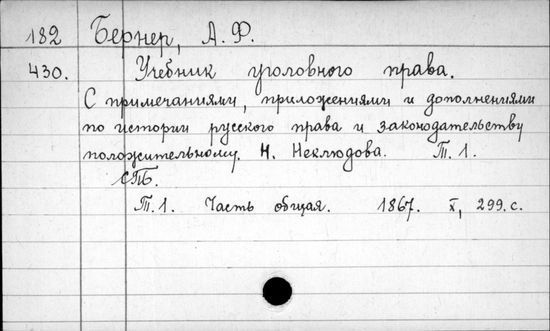 182 Бернер, А. Ф.
430. Учебник уголовного права.
С примечаниями, приложениями и дополнениями
по истории русского права и законодательству
положительному. Н. Неклюдова. Т. 1.
СПБ.
Т. 1. Часть общая. 1867. X, 299. с.